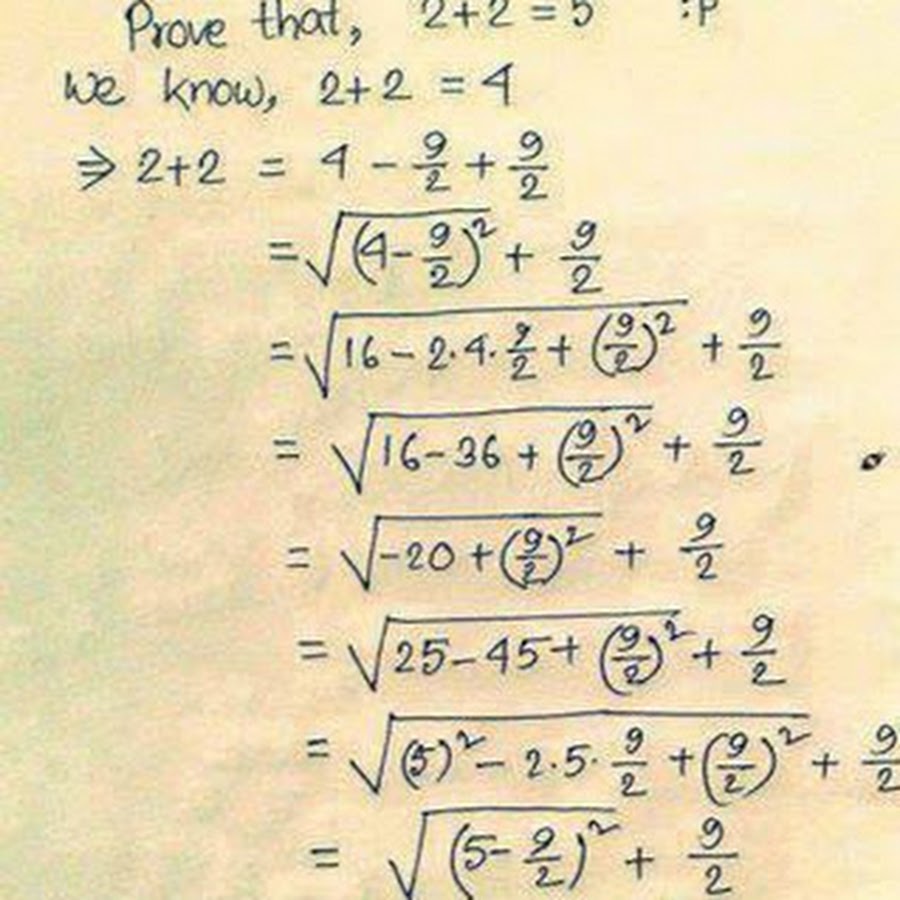 Prove that, 2+2 = 5 :P
We know, 2+2 = 4
⇒ 2+2 = 4 - 9/2 + 9/2
= √((4 - 9/2)²) + 9/2
= √(16 - 2·4·9/2 + (9/2)²) + 9/2
= √(16 - 36 + (9/2)²) + 9/2
= √(-20 + (9/2)²) + 9/2
= √(25 - 45 + (9/2)²) + 9/2
= √((5)² - 2·5·9/2 + (9/2)²) + 9/2
= √((5 - 9/2)²) + 9/2